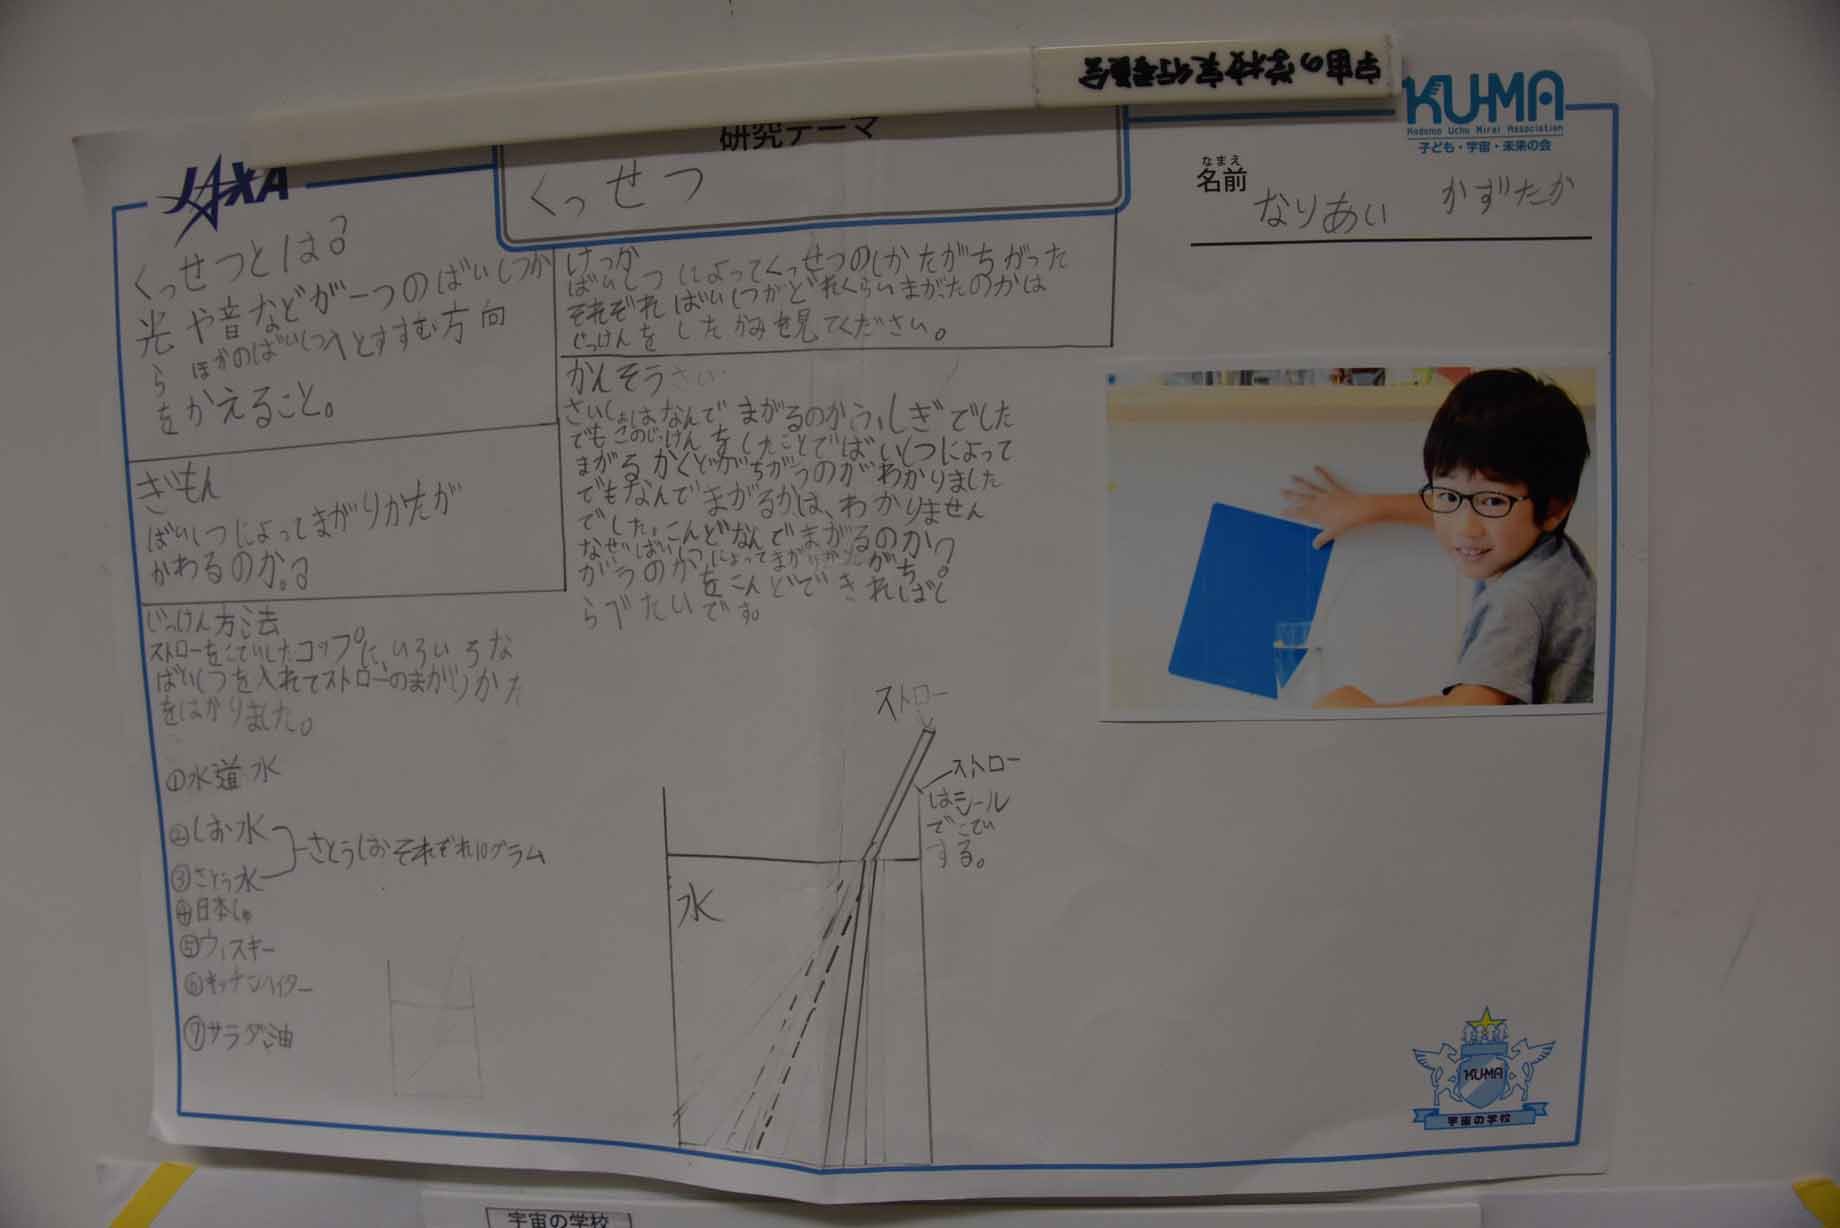 宇宙の学校実行委員会
KU-MA
Kodomo Uchu Mirai Association
子ども・宇宙・未来の会
JAXA
研究テーマ
くっせつ
なまえ
名前
なりあい かずたか
くっせつとは?
光や音などが一つのばいしつか
ら ほかのばいしつへとすすむ方向
をかえること。
ぎもん
ばいしつじょってまがりかたが
かわるのか。?
じっけん方法
ストローをこていしたコップに、いろいろな
ばいしつを入れてストローのまがりかた
をはかりました。
①水道水
②しお水
③さとう水
さとうしおそれぞれ10グラム
④日本しゅ
⑤ウィスキー
⑥キッチンハイター
⑦サラダ油
けっか
ばいしつによってくっせつのしかたがちがった
それぞればいしつがどれくらいまがったのかは
じっけんをしたかみを見てください。
かんそう
さいしょはなんでまがるのかふしぎでした
でもこのじっけんをしたことでばいしつによって
まがるかくどがちがうのがわかりました
でもなんでまがるかは、わかりません
でした。こんどなんでまがるのか?
なぜばいしつによってまがりかたがち
がうのかをこんどできればし
らべたいです。
ストロー
ストロー
はシール
でこてい
する。
水
KU-MA
宇宙の学校
宇宙の学校